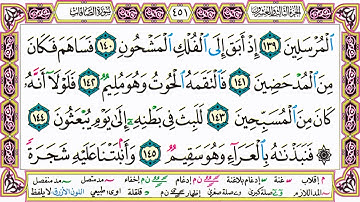 سورة الصافات ٤٥١ الجزء الثالث والعشرون
الْمُرْسَلِينَ ﴿١٣٩﴾ إِذْ أَبَقَ إِلَى الْفُلْكِ الْمَشْحُونِ ﴿١٤٠﴾ فَسَاهَمَ فَكَانَ
مِنَ الْمُدْحَضِينَ ﴿١٤١﴾ فَالْتَقَمَهُ الْحُوتُ وَهُوَ مُلِيمٌ ﴿١٤٢﴾ فَلَوْلَا أَنَّهُ
كَانَ مِنَ الْمُسَبِّحِينَ ﴿١٤٣﴾ لَلَبِثَ فِي بَطْنِهِ إِلَى يَوْمِ يُبْعَثُونَ ﴿١٤٤﴾
فَنَبَذْنَاهُ بِالْعَرَاءِ وَهُوَ سَقِيمٌ ﴿١٤٥﴾ وَأَنْبَتْنَا عَلَيْهِ شَجَرَةً